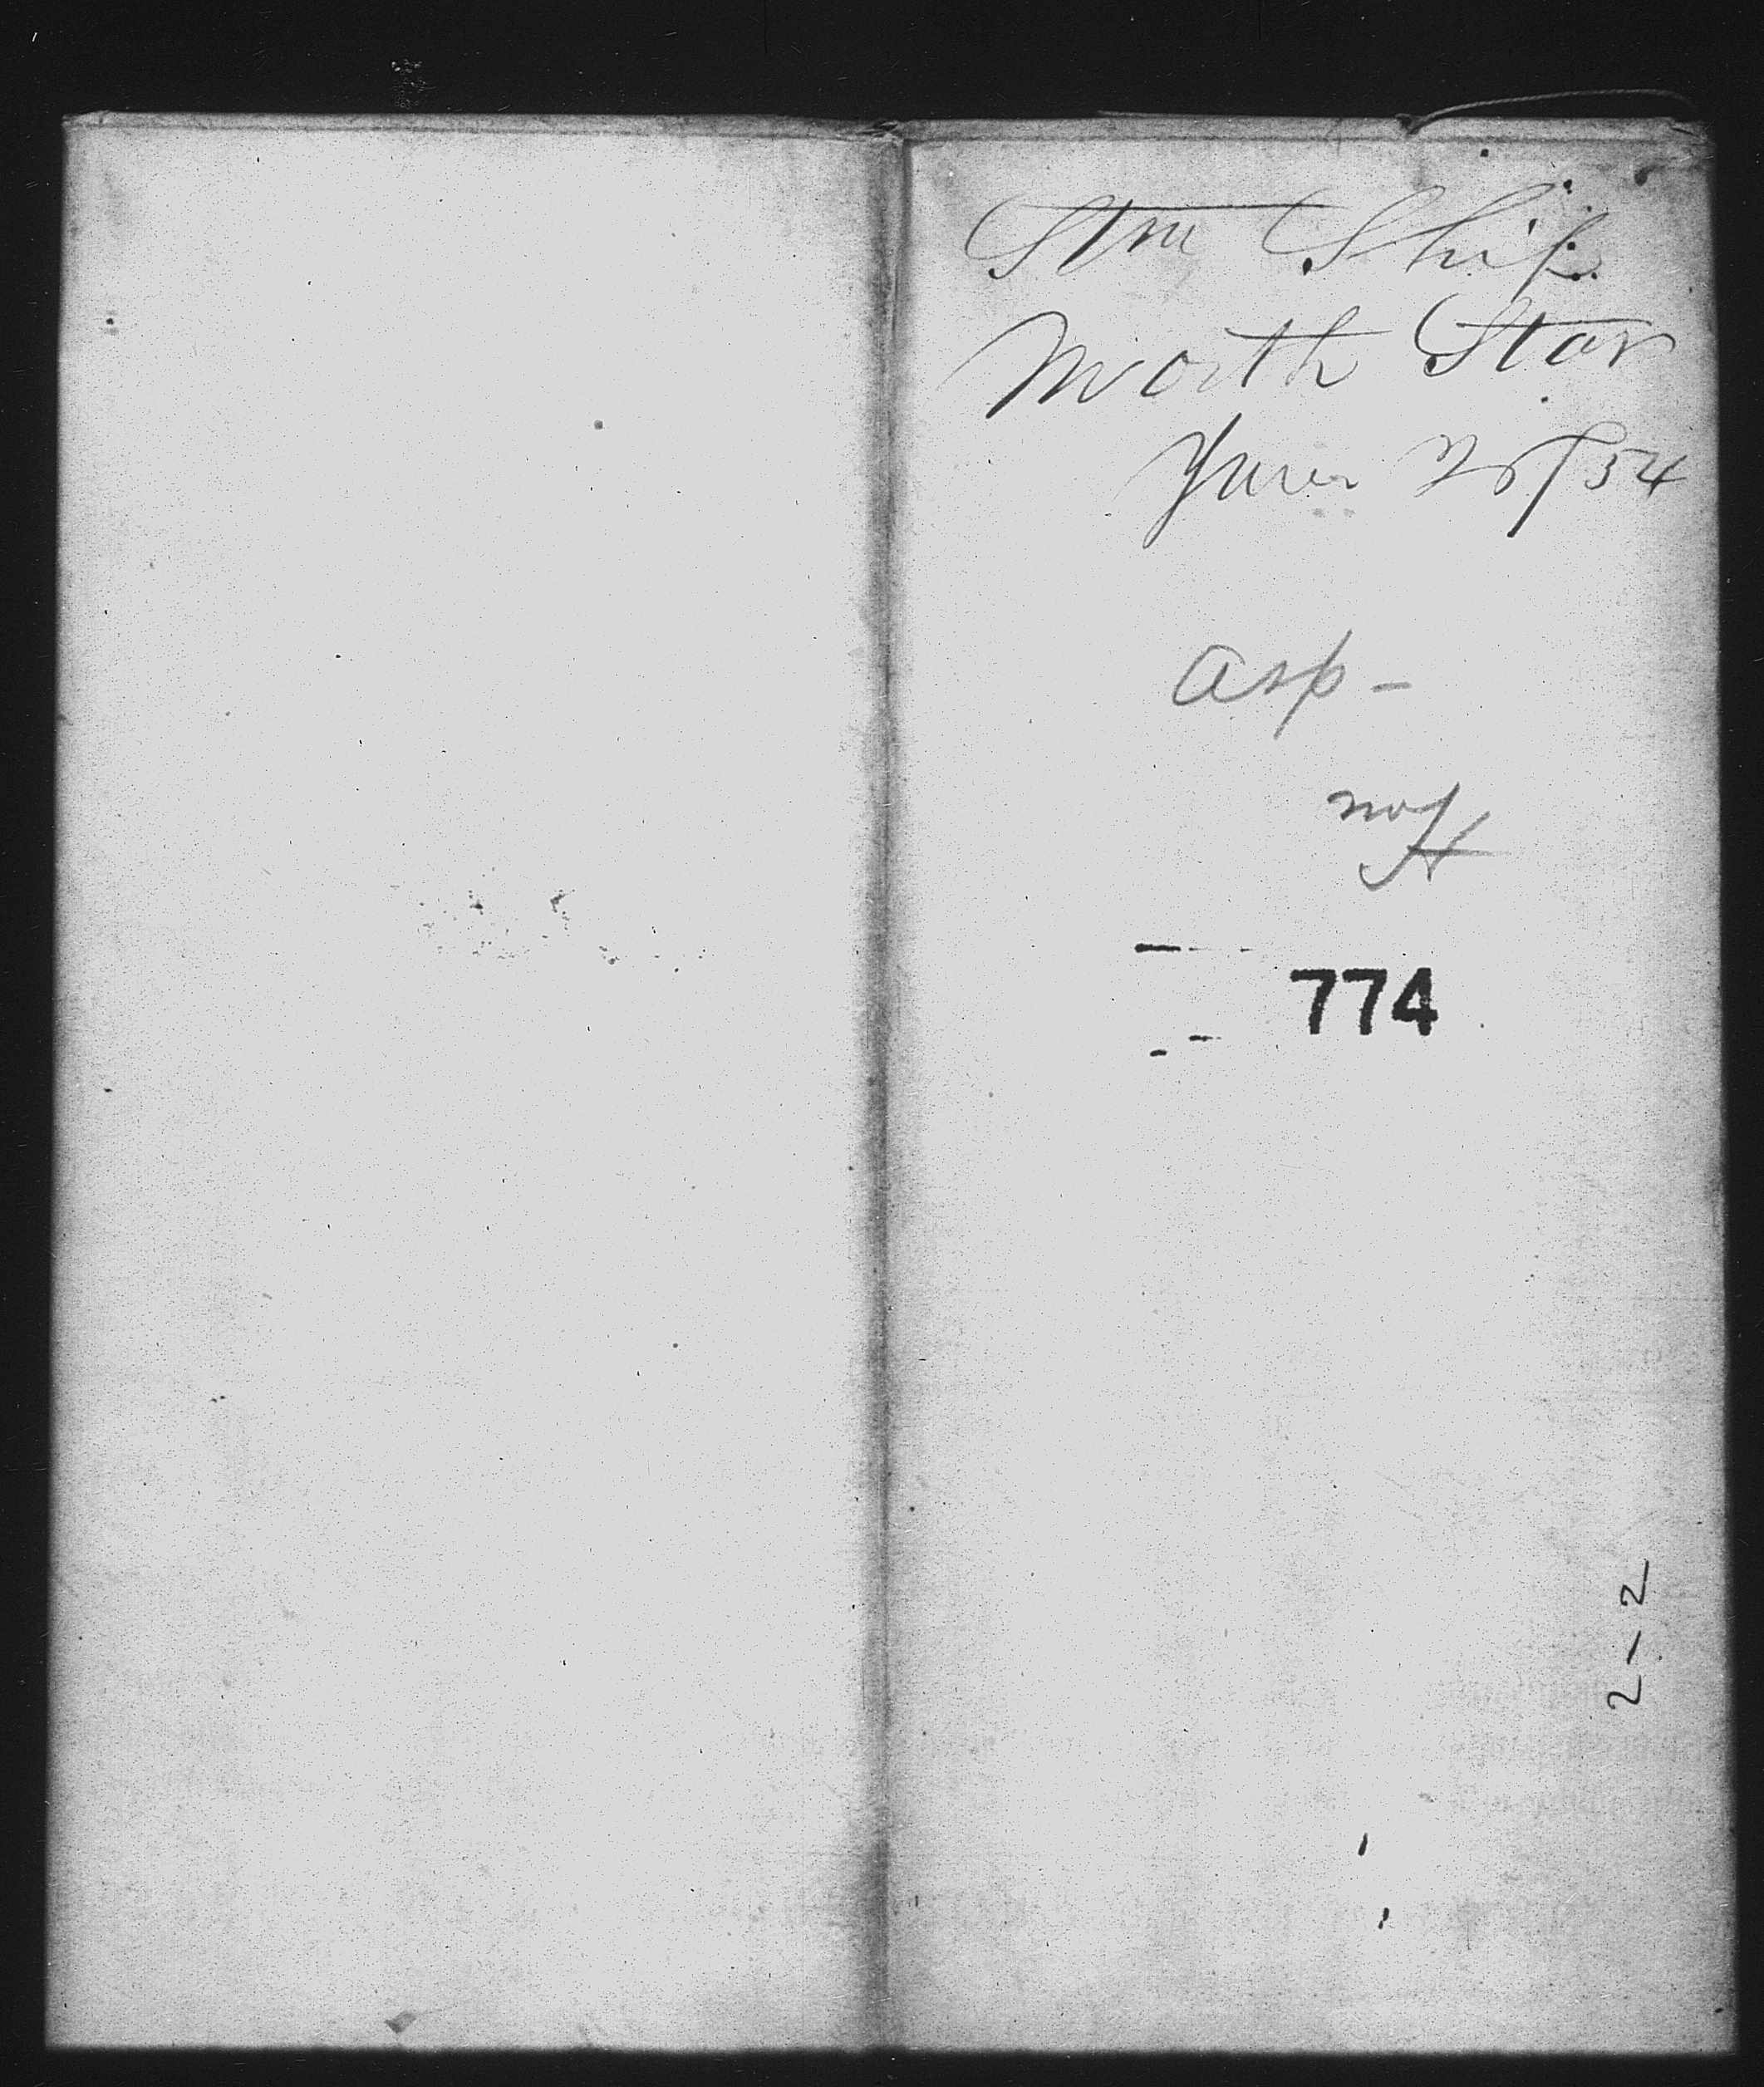 Stm Ship
North Star
June 26/54
Asp -
774
2-2